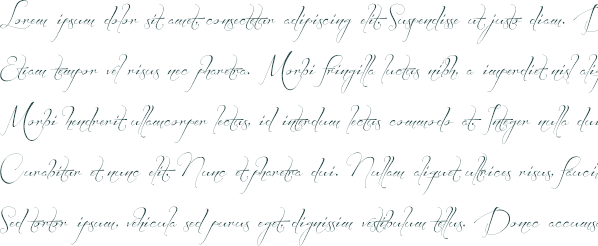 Lorem ipsum dolor sit amet, consectetur adipiscing elit. Suspendisse ut justo diam. D
Etiam tempor vel risus nec pharetra. Morbi fringilla luctus nibh, a imperdiet nisl aliq
Morbi hendrerit ullamcorper lectus, id interdum lectus commodo at. Integer nulla dui
Curabitur et nunc elit. Nunc et pharetra dui. Nullam aliquet ultrices risus, faucib
Sed tortor ipsum, vehicula sed purus eget, dignissim vestibulum tellus. Donec accumsa